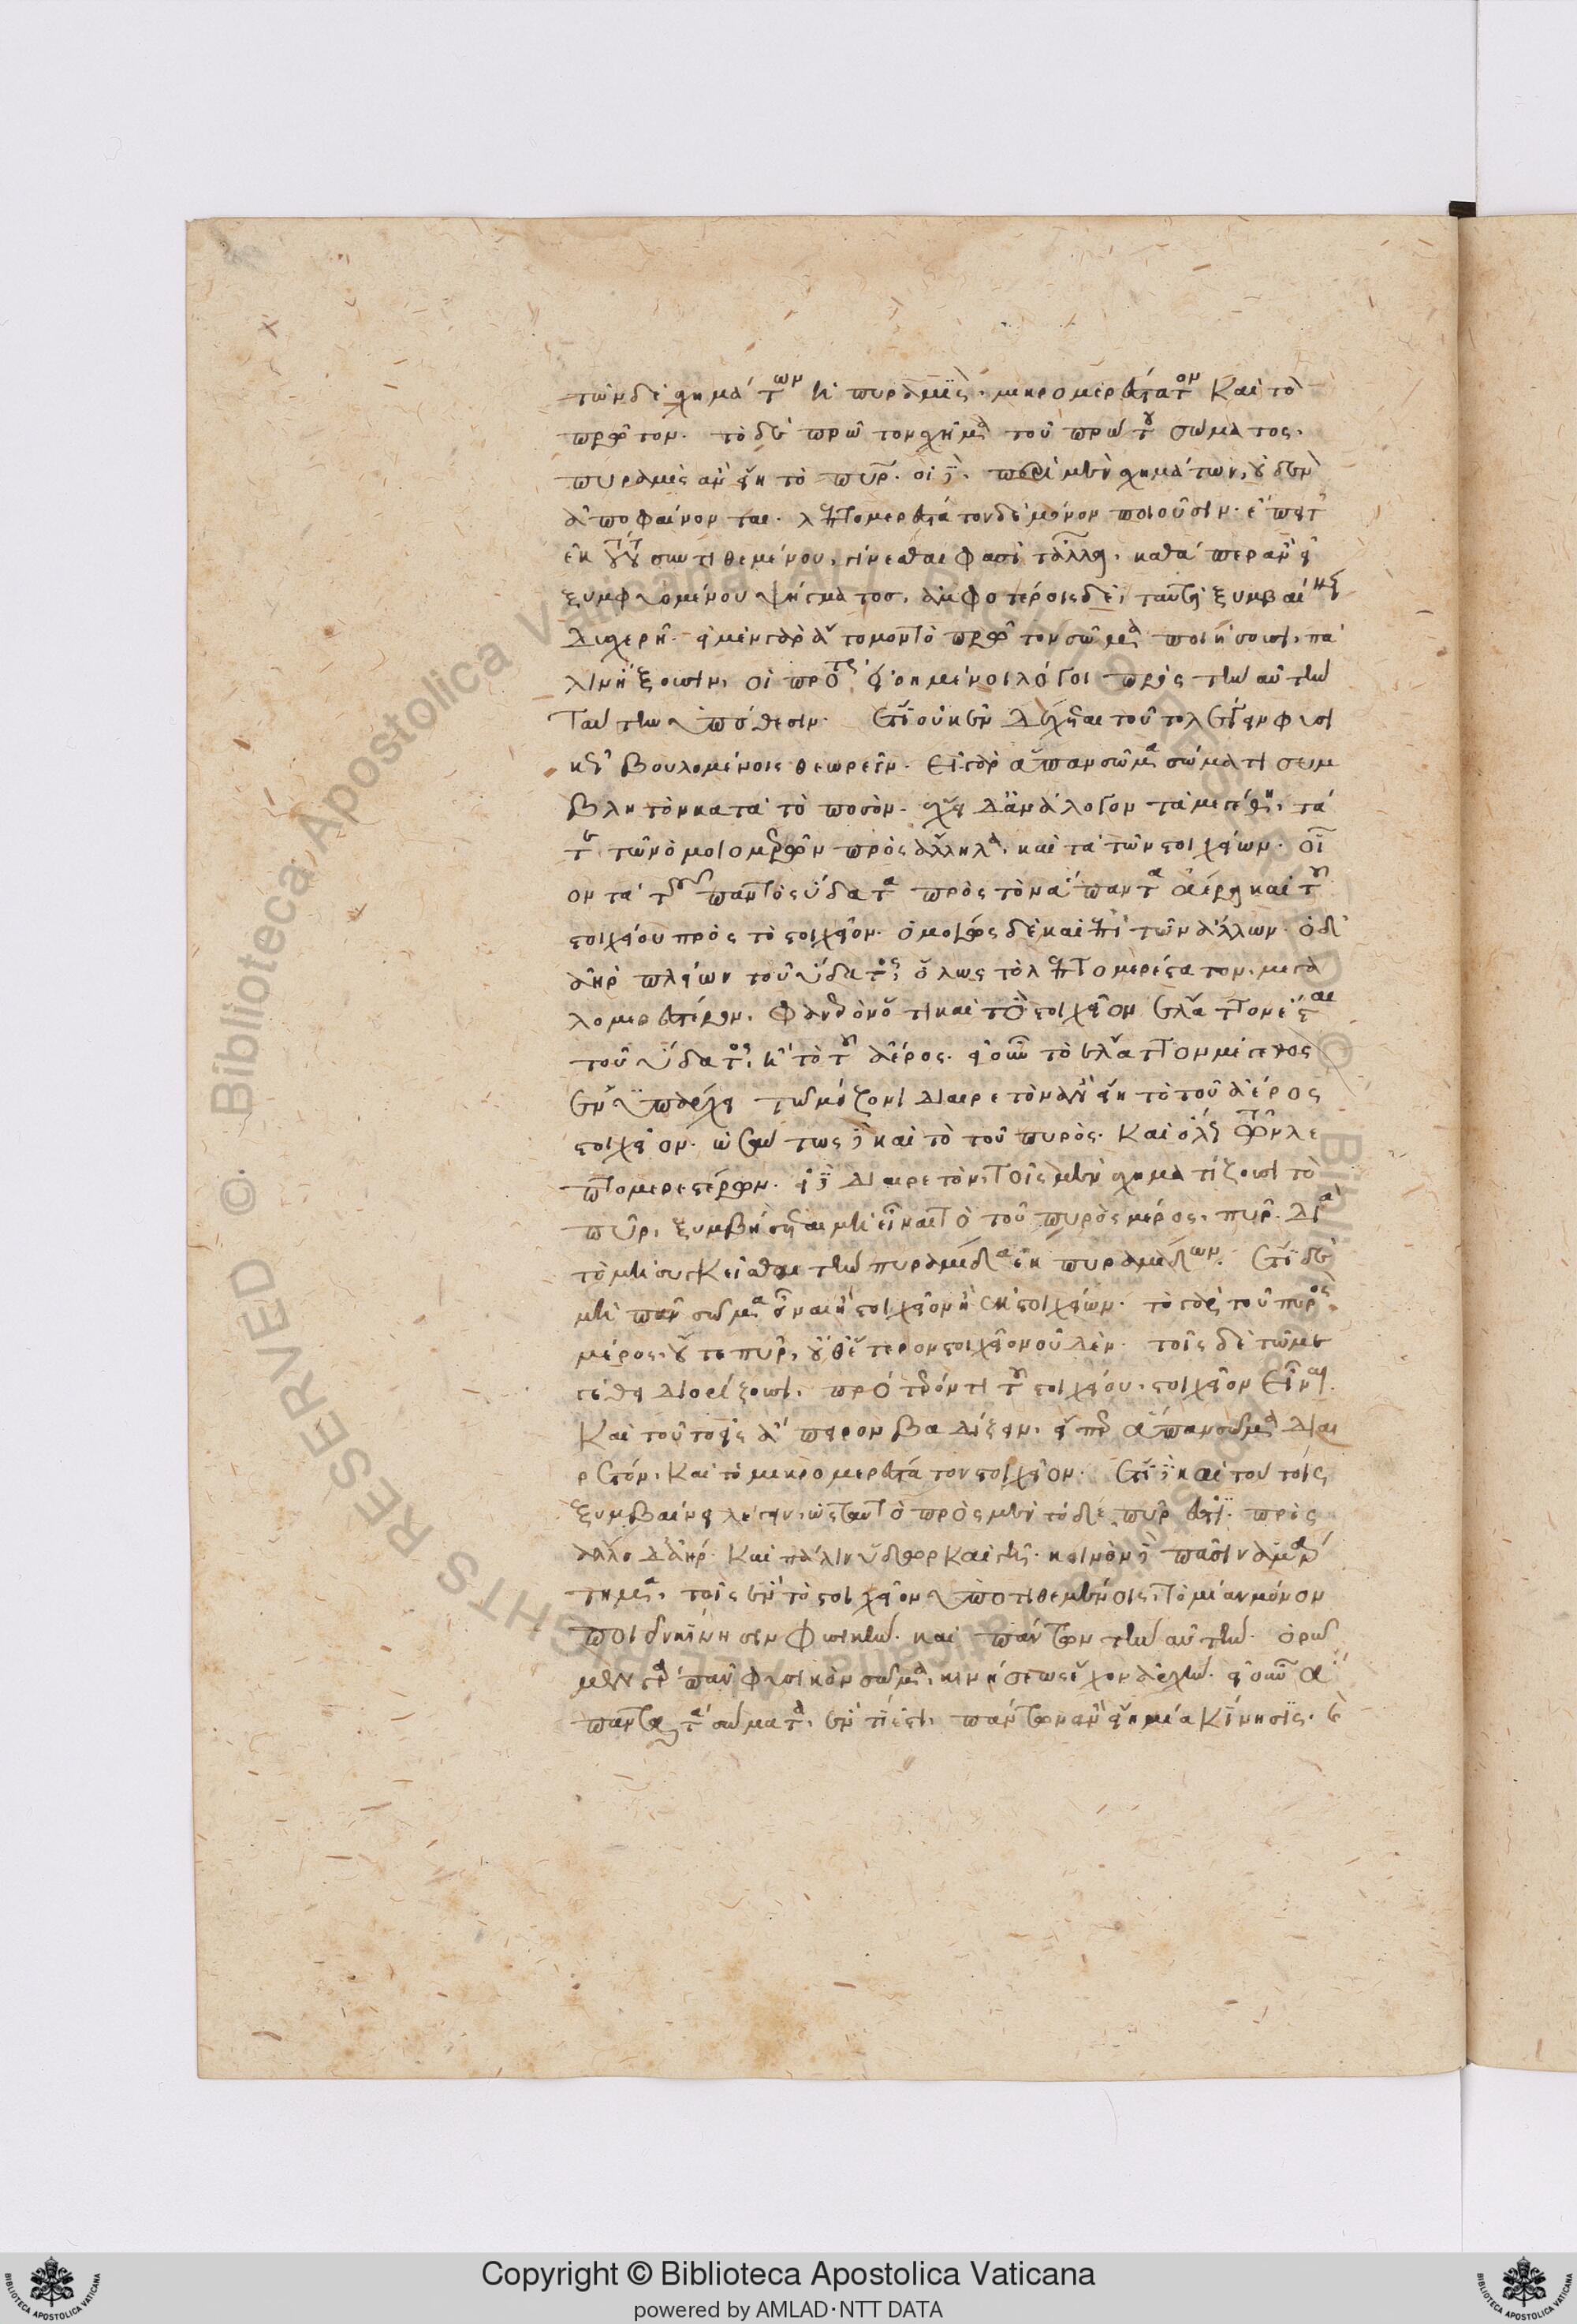 τῶν δὲ σχημάτων ἡ πυραμὶς. μικρομερέστατον καὶ τὸ
πρῶτον. τὸ δὲ πρῶτον σχῆμα τοῦ πρώτου σώματος.
πυραμὶς ἂν εἴη τὸ πῦρ. οἱ δὲ. περὶ μὲν σχημάτων, οὐδὲν
ἀποφαίνονται. λεπτομερέστατον δὲ μόνον ποιοῦσιν. ἔπειτ
ἐκ τούτου συντιθεμένου, γίνεσθαί φασι τἄλλα. καθάπερ ἂν εἰ
ξυμφυσωμένου ψήγματος. ἀμφοτέροις δὲ, ταυτὰ ξυμβαίνει
δυσχερῆ. εἰ μὲν γὰρ ἄτομον τὸ πρῶτον σῶμα ποιήσουσι, πά
λιν ἥξουσιν, οἱ πρότερον εἰρημένοι λόγοι πρὸς τὴν αὐτὴν
ταύτην ὑπόθεσιν. ἔτι οὐκ ἐνδέχεται τοῦτο λέγειν φυσι
κῶς βουλομένοις θεωρεῖν. εἰ γὰρ ἅπαν σῶμα σώματι συμ
βλητὸν κατὰ τὸ ποσὸν. ἔχει δ ἀνάλογον τὰ μεγέθη, τά
τε τῶν ὁμοιομερῶν πρὸς ἄλληλα, καὶ τὰ τῶν στοιχείων. οἷ
ον τὰ τοῦ παντὸς ὕδατος πρὸς τὸν ἅπαντα ἀέρα καὶ τοῦ
στοιχείου πρὸς τὸ στοιχεῖον. ὁμοίως δὲ καὶ ἐπὶ τῶν ἄλλων. ὁ δ
ἀὴρ πλείων τοῦ ὕδατος, ὅλως τὸ λεπτομερέστατον, μεγα
λομερεστέρου. φανερὸν ὅτι καὶ τὸ στοιχεῖον ἔλαττον ἔσται
τοῦ ὕδατος, ἢ τὸ τοῦ ἀέρος. εἰ οὖν τὸ ἔλαττον μέγεθος
ἐνυπάρχει τῷ μείζονι διαιρετὸν ἂν εἴη τὸ τοῦ ἀέρος
στοιχεῖον. ὡσαύτως δὲ καὶ τὸ τοῦ πυρὸς. καὶ ὅλως τῶν λε
πτομερεστέρων. εἰ δὲ διαιρετὸν, τοῖς μὲν σχηματίζουσι τὸ
πῦρ, ξυμβήσεται μὴ εἶναι τὸ τοῦ πυρὸς μέρος, πῦρ. διὰ
τὸ μὴ συγκεῖσθαι τὴν πυραμίδα ἐκ πυραμίδων. ἔτι δὲ
μὴ πᾶν σῶμα εἶναι ἢ στοιχεῖον ἢ ἐκ στοιχείων. τὸ γὰρ τοῦ πυρὸς
μέρος, οὔτε πῦρ, οὔθ ἕτερον στοιχεῖον οὐδὲν. τοῖς δὲ τῷ με
γέθει διορίζουσι, πρότερόν τι τοῦ στοιχείου, στοιχεῖον εἶναι.
καὶ τοῦτο εἰς ἄπειρον βαδίζειν, εἴπερ ἅπαν σῶμα διαι
ρετόν, καὶ τὸ μικρομερέστατον στοιχεῖον. ἔτι δὲ καὶ τούτοις
ξυμβαίνει λέγειν, ὡς ταυτὸ πρὸς μὲν τόδε πῦρ ἐστι. πρὸς
ἄλλο δ ἀὴρ. καὶ πάλιν ὕδωρ καὶ γῆ. κοινὸν δὲ πᾶσιν ἁμάρ
τημα, τοῖς ἓν τὸ στοιχεῖον ὑποτιθεμένοις, τὸ μίαν μόνον
ποιεῖν κίνησιν φυσικὴν. καὶ πάντων τὴν αὐτὴν. ὁρῶ
μεν γὰρ πᾶν φυσικὸν σῶμα, κινήσεως ἔχον ἀρχὴν. εἰ οὖν ἅ
παντα τὰ σώματα, ἕν τί ἐστι, πάντων ἂν εἴη μία κίνησις. ἐ
Copyright © Biblioteca Apostolica Vaticana
powered by AMLAD·NTT DATA